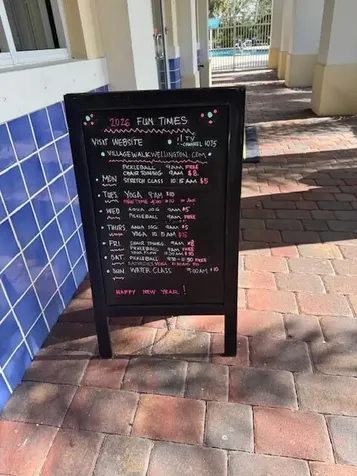 2026 FUN TIMES
VISIT WEBSITE !! TV CHANNEL 1075
VILLAGEWALKWELLINGTON.COM
PICKLEBALL 9AM FREE
CHAIR TONING 9AM $8
MON STRETCH CLASS 10:15AM $5
TUES YOGA 9AM $10
WED AQUA JOG 9AM $5
PICKLEBALL 9AM FREE
THURS AQUA JOG 9AM $5
YOGA 10:15 AM $10
FRI CHAIR TONING 9AM $8
PICKLEBALL 9AM FREE
SAT PICKLEBALL FREE
SUN WATER CLASS 9:00AM $10
HAPPY NEW YEAR!